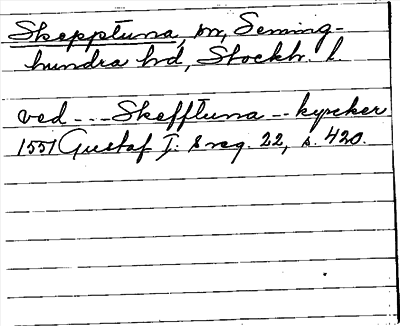 Skepptuna, sn, Seming-
hundra hd, Stockh. l.
ved --- Skefftuna -- kyrcker
1551 Gustaf I: s reg. 22, s. 420.